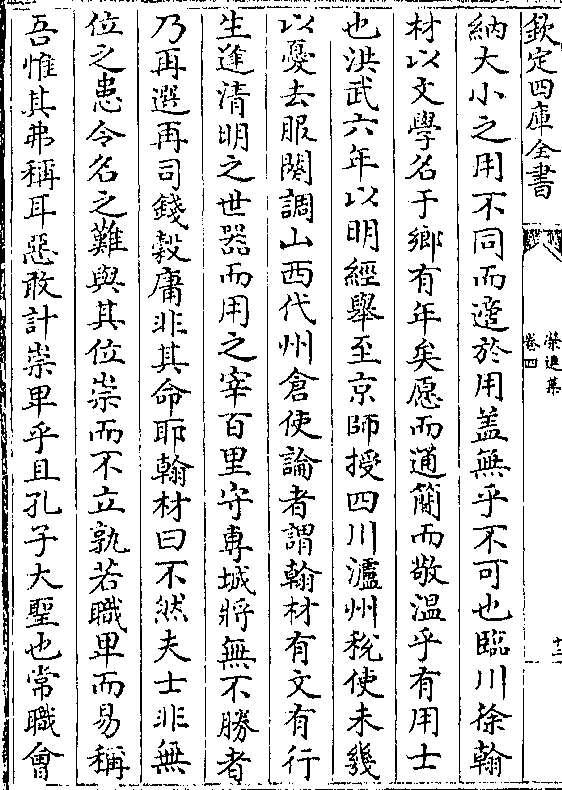 欽定四庫全書
榮進集
卷四
十二
納大小之用不同而適於用蓋無乎不可也臨川徐翰
材以文學名于鄉有年矣愿而通簡而敬溫乎有用士
也洪武六年以明經舉至京師授四川瀘州稅使未幾
以憂去服闋調山西代州倉使論者謂翰材有文有行
生逢清明之世器而用之宰百里守專城將無不勝者
乃再選再司錢榖庸非其命耶翰材曰不然夫士非無
位之患令名之難與其位崇而不立孰若職卑而易稱
吾惟其弗稱耳惡敢計崇卑乎且孔子大聖也常職會